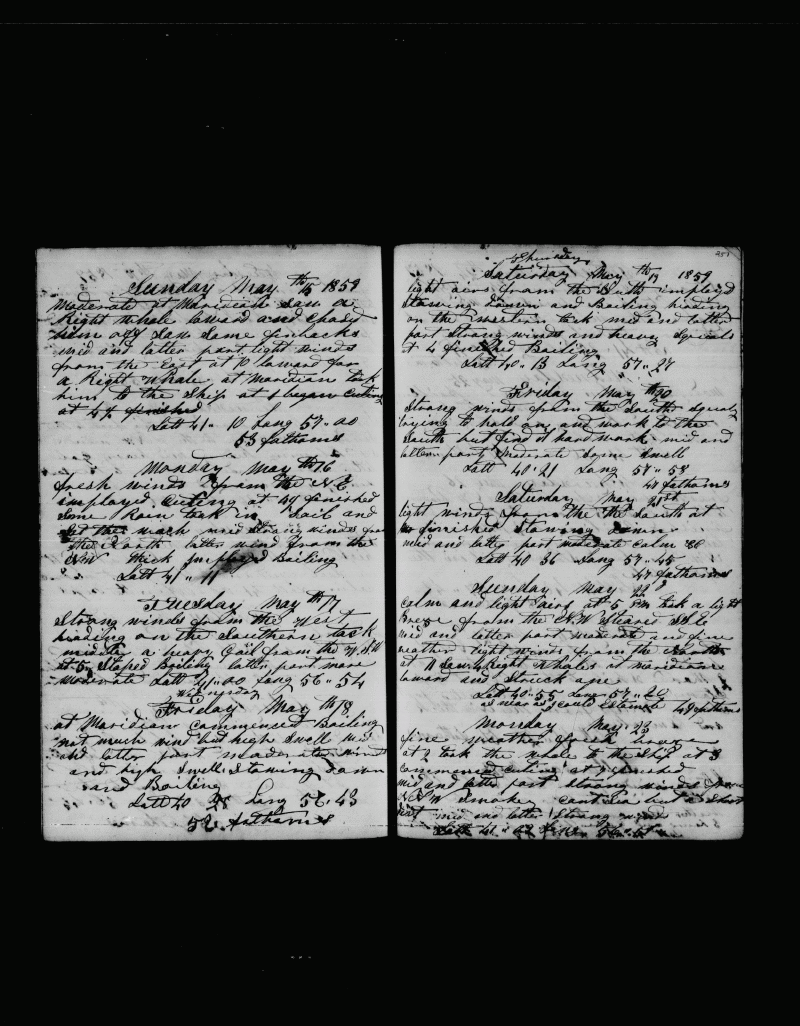 Sunday May th 15 1859
Moderate at Maridean saw a
Right whale lowerd and chased
him off saw some finbacks
mid and latter part light winds
from the East at 10 lowerd for
a Right whale at Maridian took
him to the ship at 1 began cuting
at 4½ finished
Latt 41" 10 Long 57" 00
53 fathoms
Monday May th 16
fresh winds from the N E
imployed Cuting at 4½ finished
Some Rain took in Sail and
Set the wach mid Strong winds from
the North latter wind from the
NW thick Imployed Boiling
Latt 41" 11
Tuesday May th 17
Strong winds from the West
heading on the Southern tack
middle a heavy Gail from the W.SW
at 5 Stoped Boiling latter part more
moderate Latt 41"00 Long 56"54
Wensday
Friday May th 18
at Maridian Commenced Boiling
not much wind but high Swell mid
and latter part moderate wind
and high Swell Stowing down
and Boiling
Latt 40 28 Long 56"43
52 fathoms
251
Thursday
Saturday May th 19 1859
light airs from the South imployd
Stowing down and Boiling heading
on the western tack mid and latter
part Strong winds and heavy Squals
at 4 finished Boiling
Latt 40" 13 Long 57"27
Friday May th 20
Strong winds from the South Squaly
trying to hold on and work to the
South but find it hard work mid and
latter part Moderate Some Swell
Latt 40"21 Long 57"58
40 fathoms
Saturday May 21st
light winds from the the South at
finished Stowing down
mid and latter part moderate calm &c
Latt 40 36 Long 57"45
47 fathoms
Sunday May 22
Calm and light airs at 5 PM took a light
Breese from the NW Steared
mid and latter part moderate and fine
weather light winds from the
at 11 Saw 4 Right whales at maridian
lowerd and Struck one
Latt 40"55 Long 57"20
as near as I could estimate 48 fathoms
Monday May 23
fine weather Good breese
at 2 took the whale to the Ship at 3
Commenced cuting at 7 finished
mid and latter part Strong winds from
Smokey cant Sea but a Short
mid and latter Strong winds
Latt 41"02